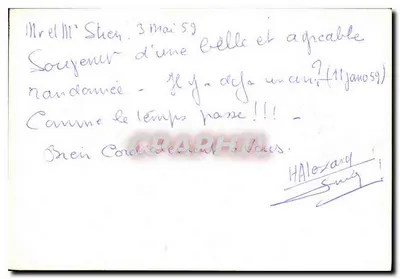 Mr et Me Sher. 3 mai 59
Souvenir d'une belle et agréable
randonnée - Il y a déjà un an? (11 janv 59)
Comme le temps passe!!! -
Bien Cordialement à vous.